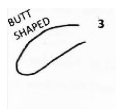 BUTT
SHAPED
3